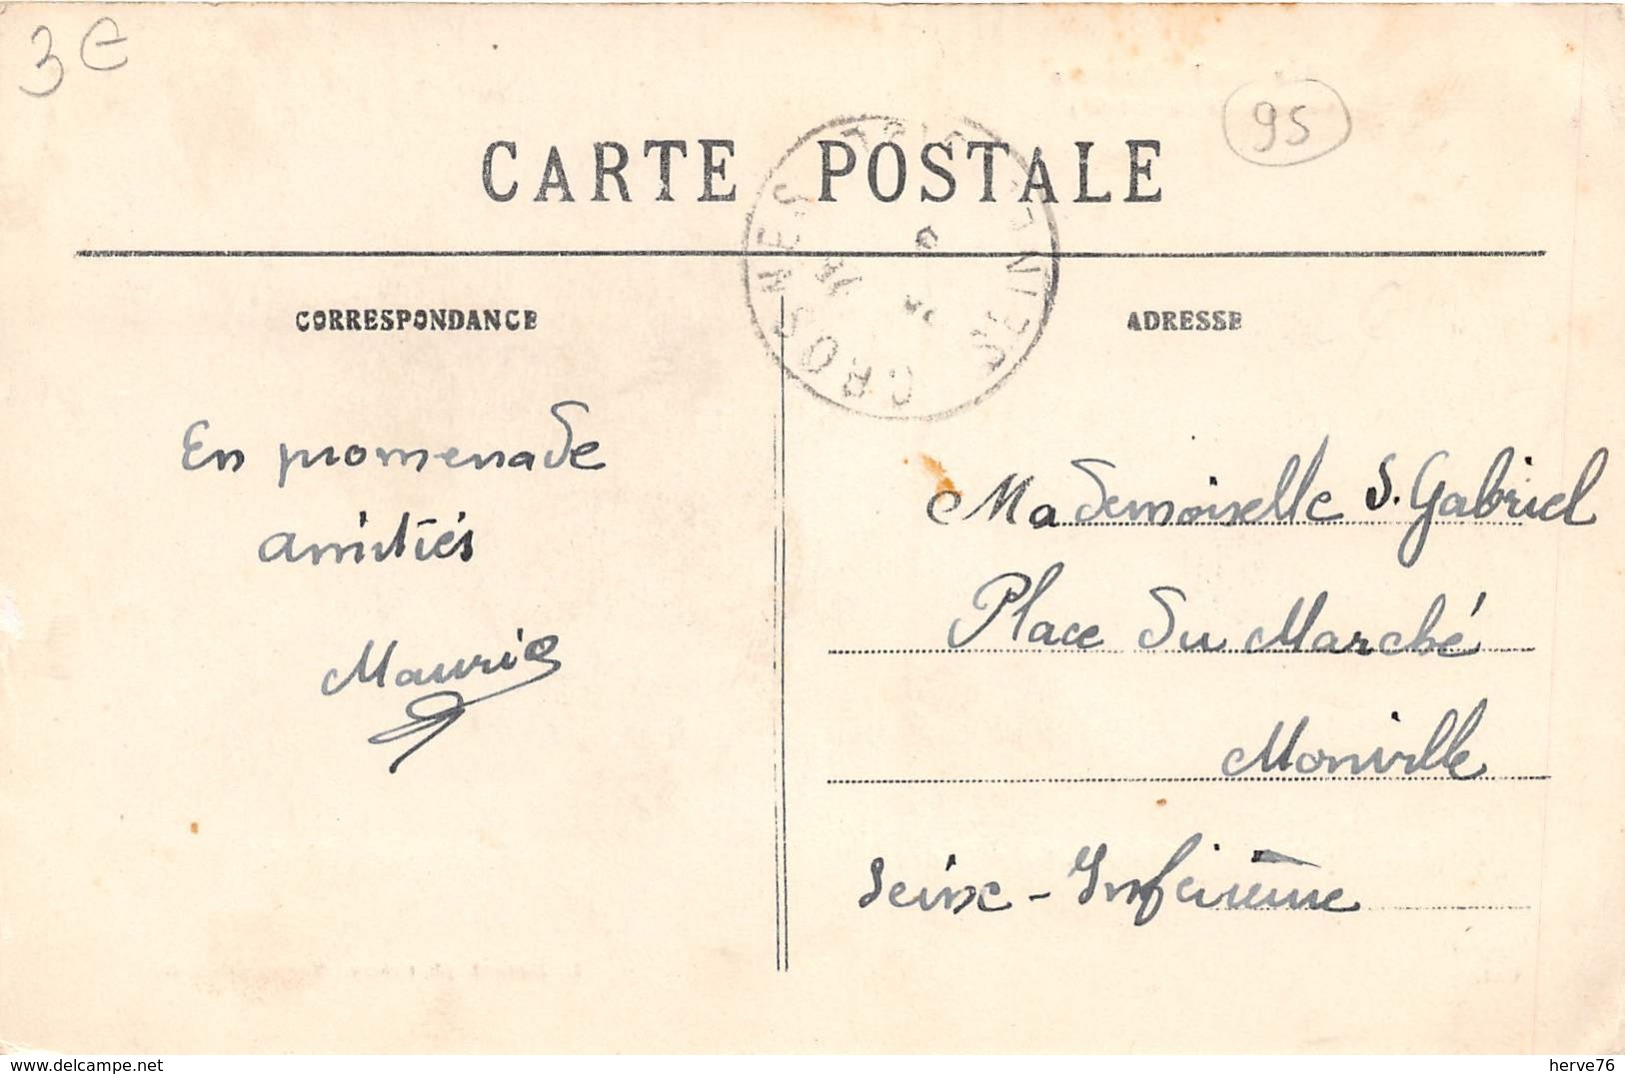 3€
95
CARTE POSTALE
CROSNES
CORRESPONDANCE
ADRESSE
En promenade
amitiés
Maurice
Mademoiselle S. Gabriel
Place du Marché
Monville
Seine-Inférieure
delcampe.net
herve76